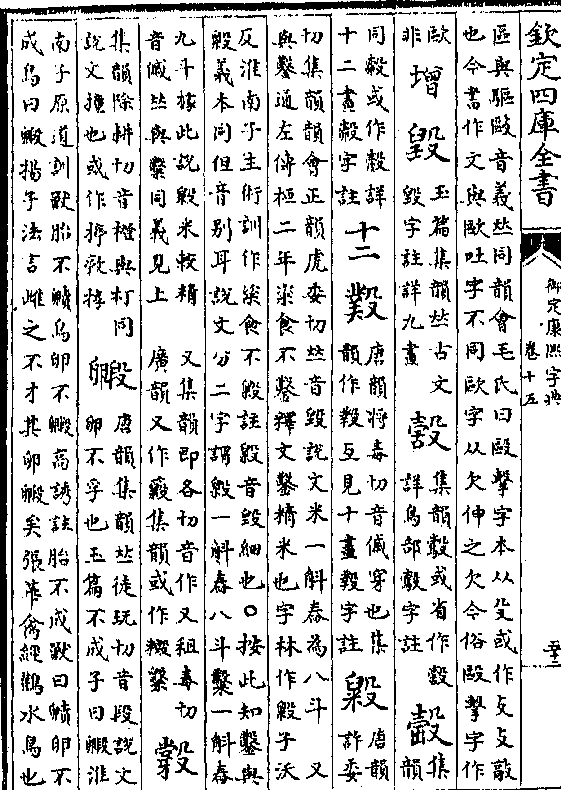 欽定四庫全書
御定康熙字典
卷十五
區與驅毆音義𠀤同韻會毛氏曰毆擊字本从殳或作攴攴敲
也今書作文與歐吐字不同歐字从欠伸之欠今俗毆擊字作
歐
非
增
毀
玉篇集韻𠀤古文
毀字註詳九畫
集韻鷇或省作㲉
詳鳥部鷇字註
集
韻
同㲉或作㲉詳
十二畫㲉字註
十二
唐韻將毒切音傶穿也集
韻作𣪲互見十畫𣪲字註
毇
唐韻
許委
切集韻韻會正韻虎委切𠀤音毀說文米一斛舂為八斗 又
與鑿通左傳桓二年粢食不鑿釋文鑿精米也字林作毇子沃
反淮南子主術訓作粢食不毇註毇音毀細也○按此知鑿與
毇義本同但音別耳說文分二字謂毇一斛舂八斗糳一斛舂
九斗據此說毇米較精 又集韻即各切音作又租毒切
音傶𠀤與糳同義見上 廣韻又作 集韻或作
集韻除耕切音橙與朾同
說文撞也或作揨
毈
唐韻集韻𠀤徒玩切音段說文
卵不孚也玉篇不成子曰毈淮
南子原道訓獸胎不贕鳥卵不毈高誘註胎不成獸曰贕卵不
成鳥曰毈揚子法言雌之不才其卵毈矣張華禽經鸛水鳥也